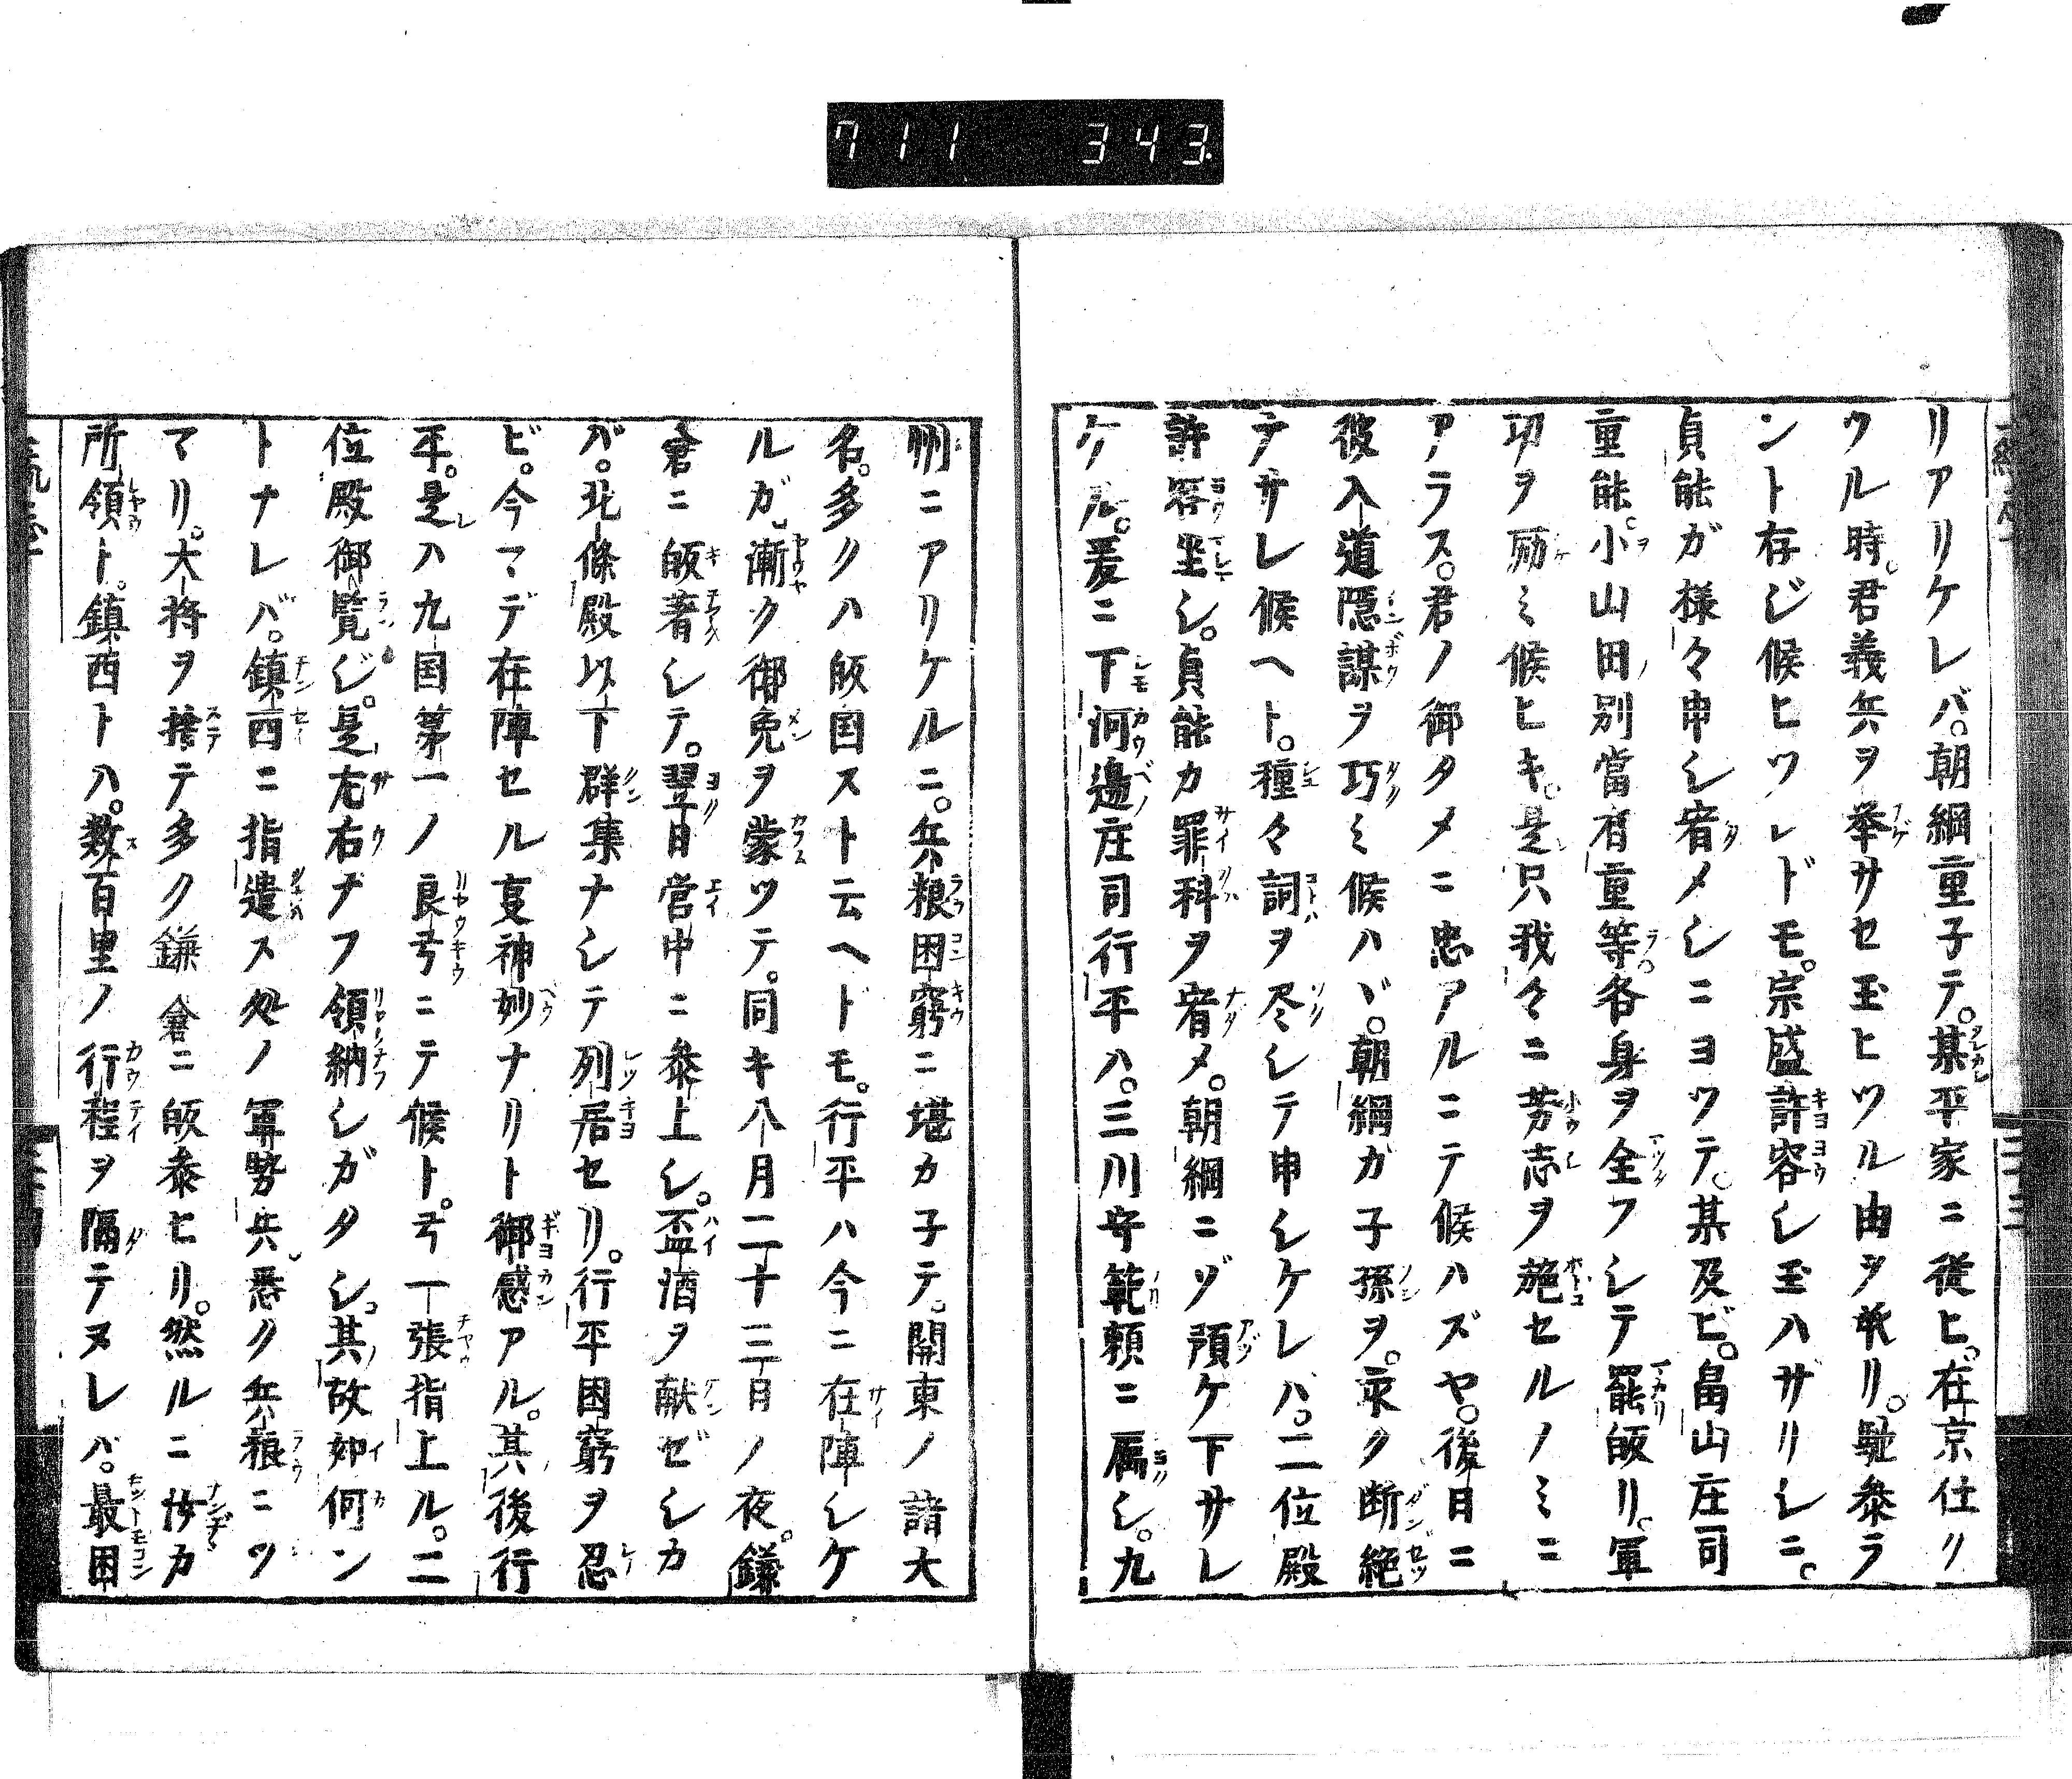 711 343
リアリケレバ。朝綱重子テ。某平家ニ従ヒ。在京仕リ
ツル時。君義兵ヲ挙サセ玉ヒツル由ヲ承リ。馳参ラ
ント存ジ候ヒツレドモ。宗盛許容シ玉ハザリシニ。
貞能ガ様々申シ宥メシニヨツテ。某及ビ。畠山庄司
重能。小山田別當有重等。各身ヲ全フシテ罷皈リ。軍
功ヲ励ミ候ヒキ。是只我々ニ芳志ヲ施セルノミニ
アラス。君ノ御タメニ忠アルニテ候ハズヤ。後日ニ
彼入道隠謀ヲ巧ミ候ハヾ。朝綱ガ子孫ヲ。永ク断絶
テサレ候ヘト。種々詞ヲ尽シテ申シケレバ。二位殿
許容坐シ。貞能カ罪科ヲ宥メ。朝綱ニゾ預ケ下サレ
ケル。爰ニ下河邉庄司行平ハ。三川守範頼ニ属シ。九
州ニアリケルニ。兵粮困窮ニ堪カ子テ。関東ノ諸大
名。多クハ皈国スト云ヘドモ。行平ハ今ニ在陣シケ
ルガ。漸ク御免ヲ蒙ツテ。同キ八月二十三日ノ夜。鎌
倉ニ皈著シテ。翌日営中ニ参上シ。盃酒ヲ献ゼシカ
バ。北條殿以下群集ナシテ列居セリ。行平困窮ヲ忍
ビ。今マデ在陣セル支神妙ナリト御感アル。其後行
平。是ハ九国第一ノ良弓ニテ候ト。弓一張指上ル。二
位殿御覧ジ。是左右ナフ領納シガタシ。其故如何ン
トナレバ。鎮西ニ指遣ス処ノ軍勢兵。悉ク兵粮ニツ
マリ。大将ヲ捨テ多ク鎌倉ニ皈参ヒリ。然ルニ汝カ
所領ト。鎮西トハ。数百里ノ行程ヲ隔テヌレバ。最困